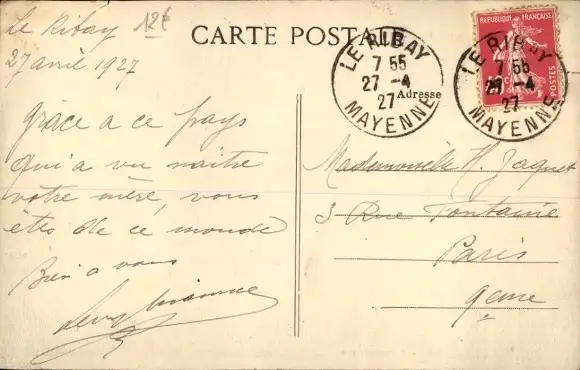 Le Ribay 12€
27 avril 1927
Grâce a ce pays
qui a vu naitre
votre mère, vous
êtes de ce monde
Bien a vous
CARTE POSTALE
LE RIBAY
7 55
27 -4
27
MAYENNE
LE RIBAY
7 55
27 -4
27
MAYENNE
REPUBLIQUE FRANÇAISE
POSTES
Adresse
Mademoiselle H. Jaquet
3 Rue Fontaine
Paris
9eme